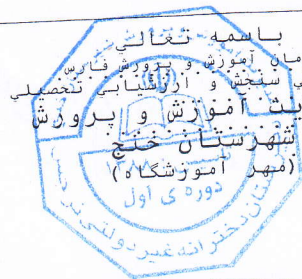 باسمه تعالي
مان آموزش و پرورش فارس
ي سنجش و ارزشيابي تحصيلي
يت آموزش و پرورش
شهرستان خنج
(مهر آموزشگاه)
دوره ی اول
ستان دخترانه غیر دولتی